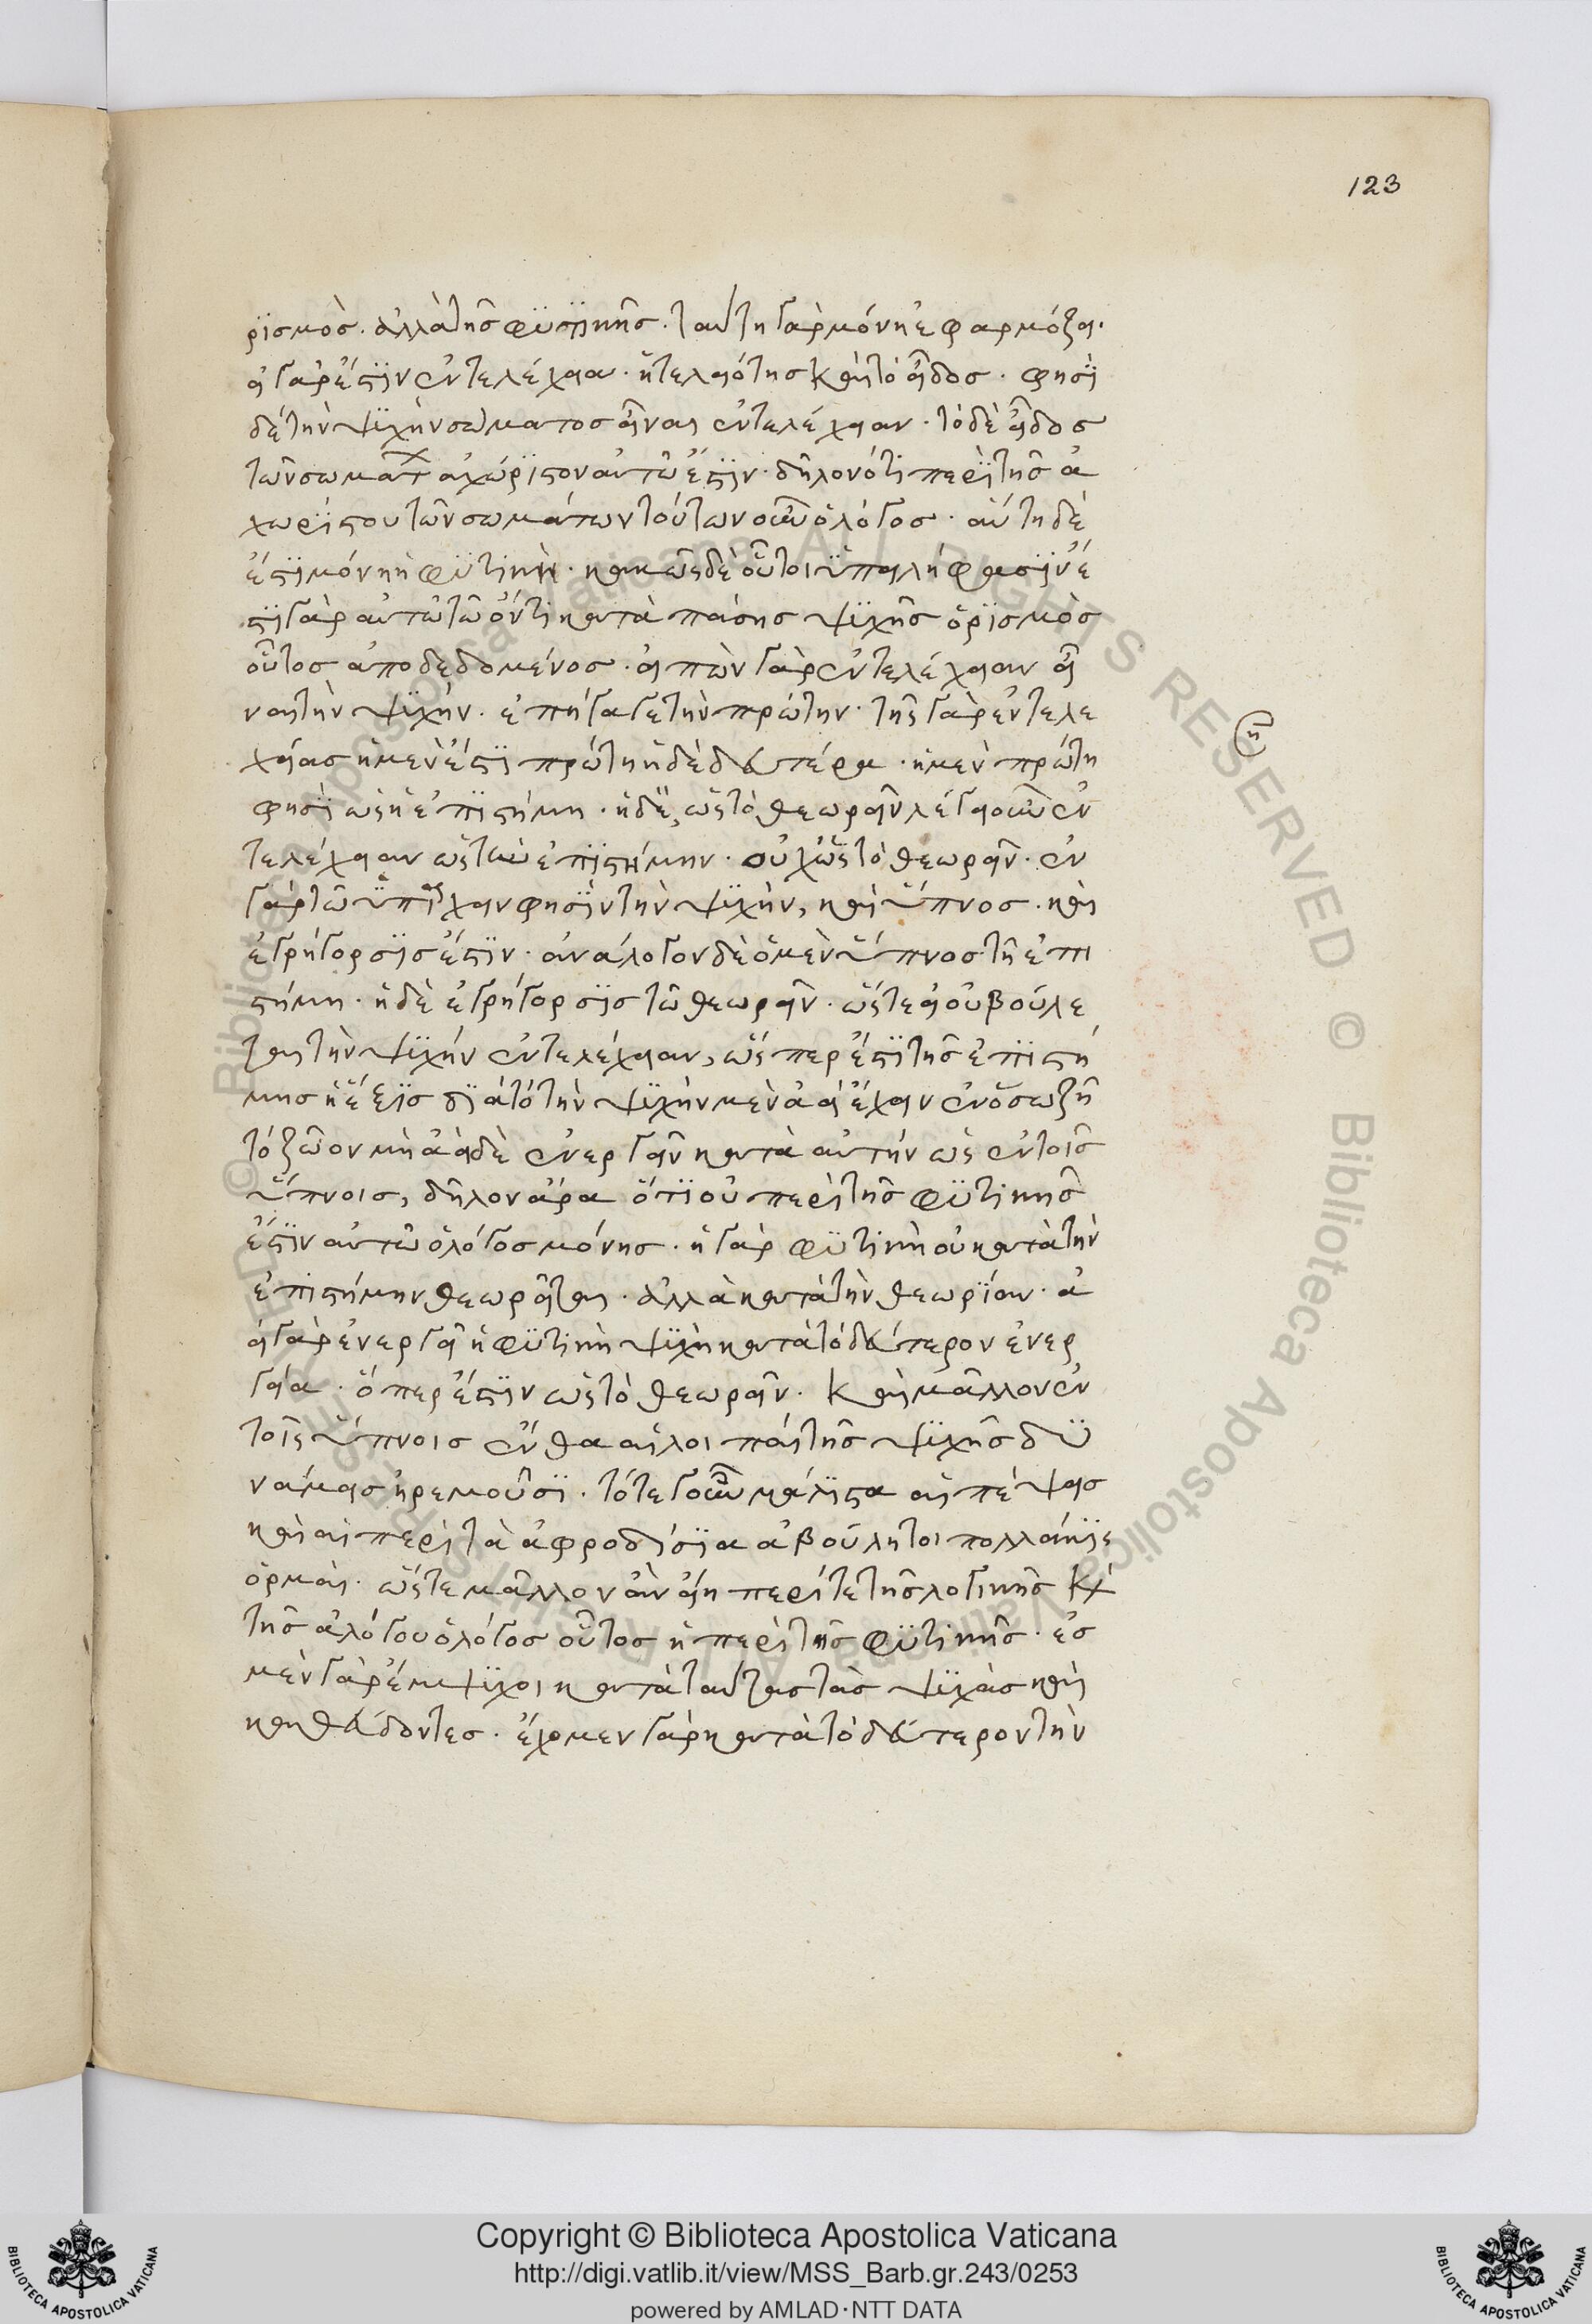 123
ρϊσμὸσ. ἀλλὰ τῆσ φϋσϊκῆσ. ταύτη γὰρ μόνη ἐφαρμόζει.
εἰ γάρ ἐστϊν ἐντελέχεια. ἡ τελειότησ καὶ τὸ εἶδοσ. φησὶ
δέ τὴν ψϋχὴν σώματοσ εἶναι ἐντελέχειαν. τὸ δὲ εἶδοσ
τῶν σωμάτ ἀχώρϊστον αὐτῶ ἐστϊν. δῆλον ὅτι περὶ τῆσ ἀ
χωρϊστου τῶν σωμάτων τούτων οὖν ὁ λόγοσ. αὕτη δὲ
ἐστϊ μόνη ἡ φϋτικὴ. κακῶς δὲ οὗτοι ὑπειλήφθεσϊν ἔ
στϊ γὰρ αὐτῶ τῶ ὄντι κατὰ πάσησ ψϋχῆσ ὁρϊσμὸσ
οὗτοσ ἀποδεδομένοσ. εἰπὼν γὰρ ἐντελέχειαν εἶ
ναι τὴν ψϋχήν. ἐπήγαγε τὴν πρώτην. τῆς γὰρ ἐντελε
χείασ ἡ μὲν ἐστϊ πρώτη ἡ δὲ δευτέρα. ἡ μὲν πρώτη
(η)
φησὶ ὡς ἡ ἐπϊστήμη. ἡ δὲ, ὡς τὸ θεωρεῖν λέγει οὖν ἐν
τελέχειαν ὡς τὴν ἐπϊστήμην. οὐχ ὡς τὸ θεωρεῖν. ἐν
γὰρ τῶ ὑπάρχειν φησϊν τὴν ψϋχὴν, καὶ ὕπνοσ. καὶ
ἐγρήγορσϊσ ἐστϊν. ἀνάλογον δὲ ὁ μὲν ὕπνοσ τῆ ἐπι
στήμη. ἡ δὲ ἐγρήγορσϊσ τῶ θεωρεῖν. ὥστε εἰ οὐ βούλε
ται τὴν ψϋχήν ἐντελέχειαν, ὥσπερ ἐστϊ τῆσ ἐπϊστή
μησ ἡ ἕξϊσ δϊὰ τὸ τὴν ψϋχὴν μὲν ἀεὶ ἔχειν ἐν ὅσω ζῆ
τὸ ζῶον μὴ ἀεὶ δὲ ἐνεργεῖν κατὰ αὐτήν ὡς ἐν τοῖσ
ὕπνοισ, δῆλον ἄρα ὅτϊ οὐ περὶ τῆσ φϋτικῆσ
ἐστϊν αὐτῶ ὁ λόγοσ μόνησ. ἡ γὰρ φϋτικὴ οὐ κατὰ τὴν
ἐπιστήμην θεωρεῖται. ἀλλὰ κατὰ τὴν θεωρϊαν. ἀ
εἰ γὰρ ἐνεργεῖ ἡ φϋτικὴ ψϋχὴ κατὰ τὸ δεύτερον ἐνερ
γεία. ὅπερ ἐστϊν ὡς τὸ θεωρεῖν. καὶ μᾶλλον ἐν
τοῖς ὕπνοισ ἔνθα αἱ λοιπαί τῆσ ψϋχῆσ δϋ
νάμεισ ἠρεμοῦσϊ. τότε γοῦν μάλϊστα αἱ πέψεισ
καὶ αἱ περὶ τὰ ἀφροδίσϊα ἀβούλητοι πολλάκϊς
ὁρμαὶ. ὥστε μᾶλλον ἂν εἴη περὶ τε τῆσ λογικῆσ καὶ
τῆσ ἀλόγου ὁ λόγοσ οὗτοσ ἢ περὶ τῆσ φϋτικῆσ. ἐσ
μὲν γὰρ ἔμψϋχοι κατὰ ταύτασ τὰσ ψϋχὰσ καὶ
καθεύδοντεσ. ἔχομεν γὰρ κατὰ τὸ δεύτερον τὴν
© Biblioteca Apostolica Vaticana ALL RIGHTS RESERVED
Copyright © Biblioteca Apostolica Vaticana
http://digi.vatlib.it/view/MSS_Barb.gr.243/0253
powered by AMLAD·NTT DATA
BIBLIOTECA APOSTOLICA VATICANA
BIBLIOTECA APOSTOLICA VATICANA